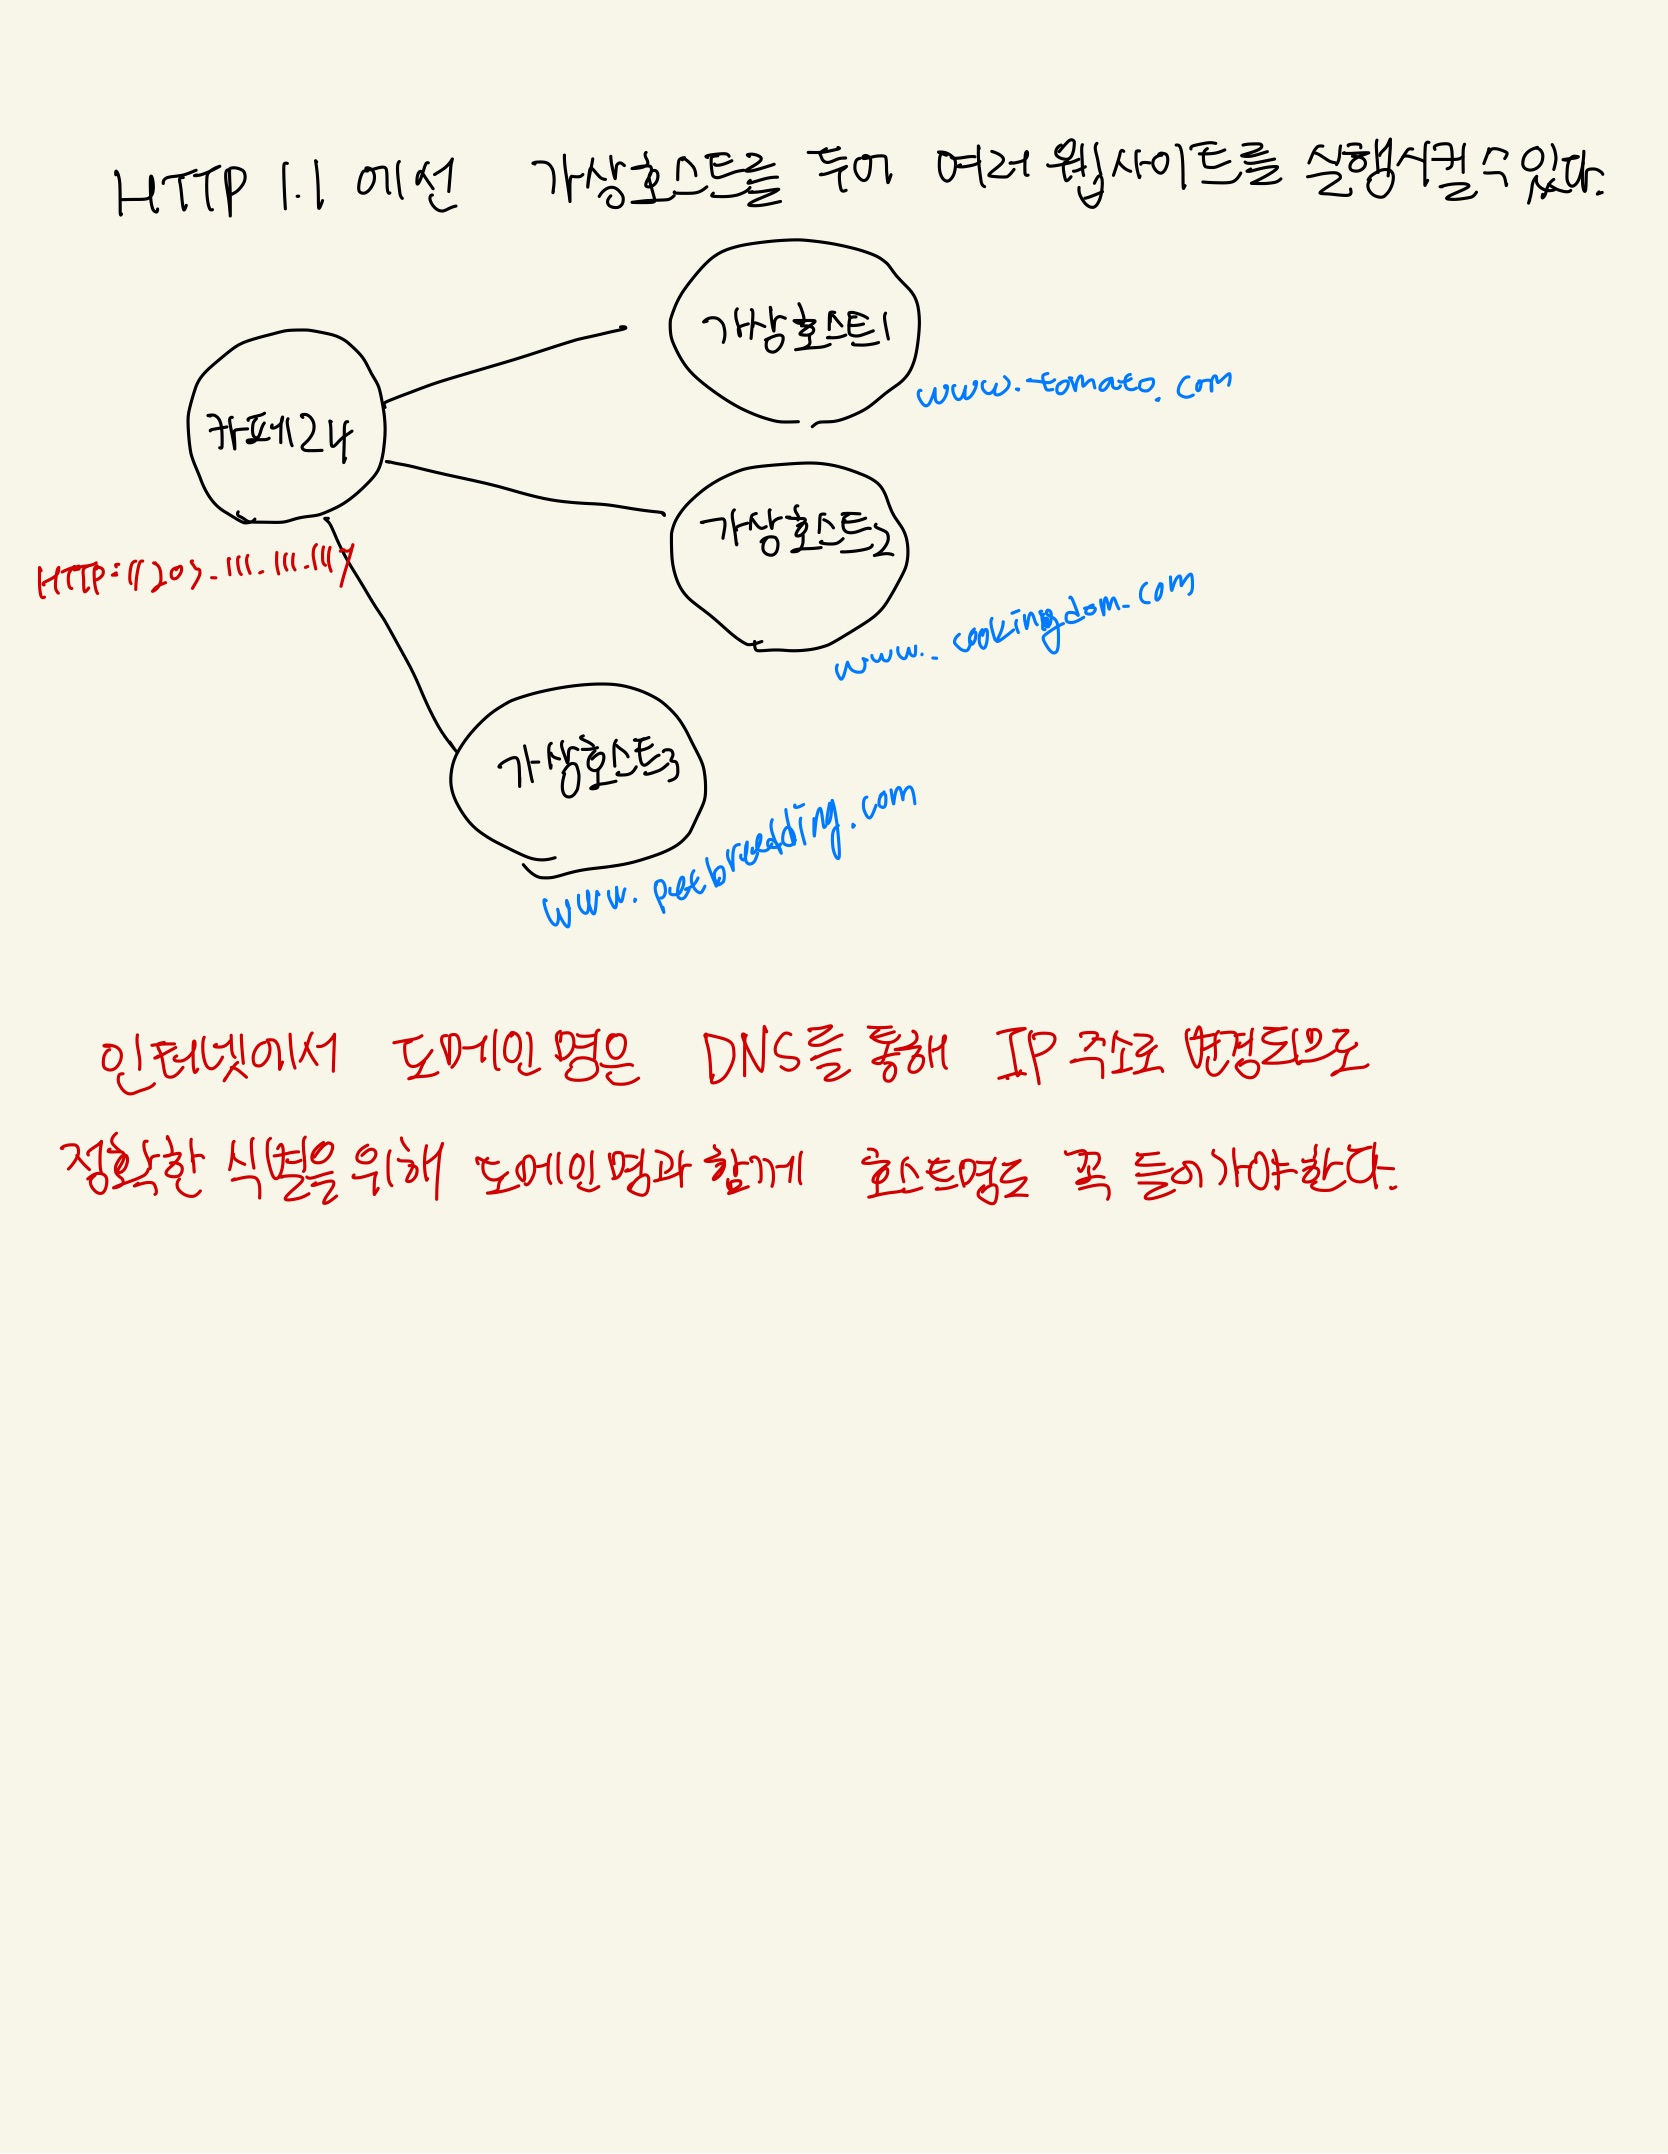 HTTP 1.1 에선 가상호스트를 두어 여러 웹사이트를 실행시킬 수 있다.
가상호스트1
www.tomato.com
카페24
가상호스트2
HTTP://203.111.111.111/
www.cookingdom.com
가상호스트3
www.petbreedding.com
인터넷에서 도메인명은 DNS를 통해 IP 주소로 변경되므로
정확한 식별을 위해 도메인명과 함께 호스트명도 꼭 들어가야한다.